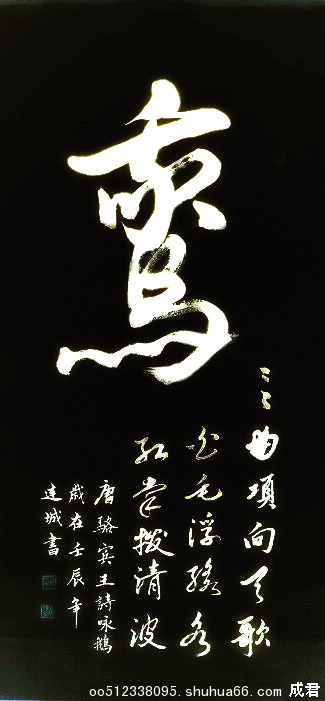 鵞
〻〻曲項向天歌
白毛浮綠水
紅掌撥清波
唐駱賓王詩咏鵝
歲在壬辰年
連城書
oo512338095.shuhua66.com 成君